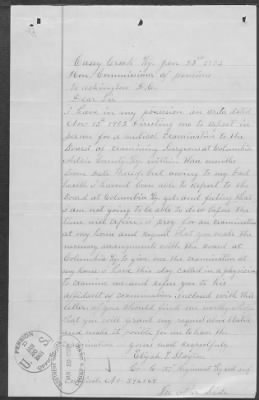 Casey Creek Ky. Jan 23rd 1903
Hon. Commissioner of pensions
Washington D.C.
Dear Sir
I have in my possession an order dated
Nov 15th 1902 directing me to report in
person for a medical Examination to the
Board of examining Surgeons at Columbia
Adair County Ky within three months
from date thereof but owing to my bad
health I havent been able to report to the
Board at Columbia Ky yet and feeling that
I am not going to be able to do so before the
time will expire I beg for an examination
at my home and request that you make the
necessary arrangements with the Board at
Columbia Ky to give me the examination at
my home I have this day called in a physician
to examine me and refer you to his
affidavit of examination inclosed with this
letter if you should find me worthy
that you will grant my request
and make it possible for me to have the
examination yours most respectfully
Elijah
Co.
PENSION